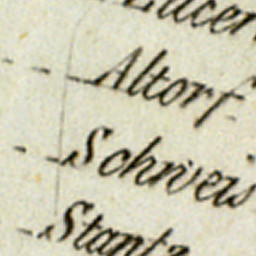 Lucer
Altorf
Schweis
Stantz